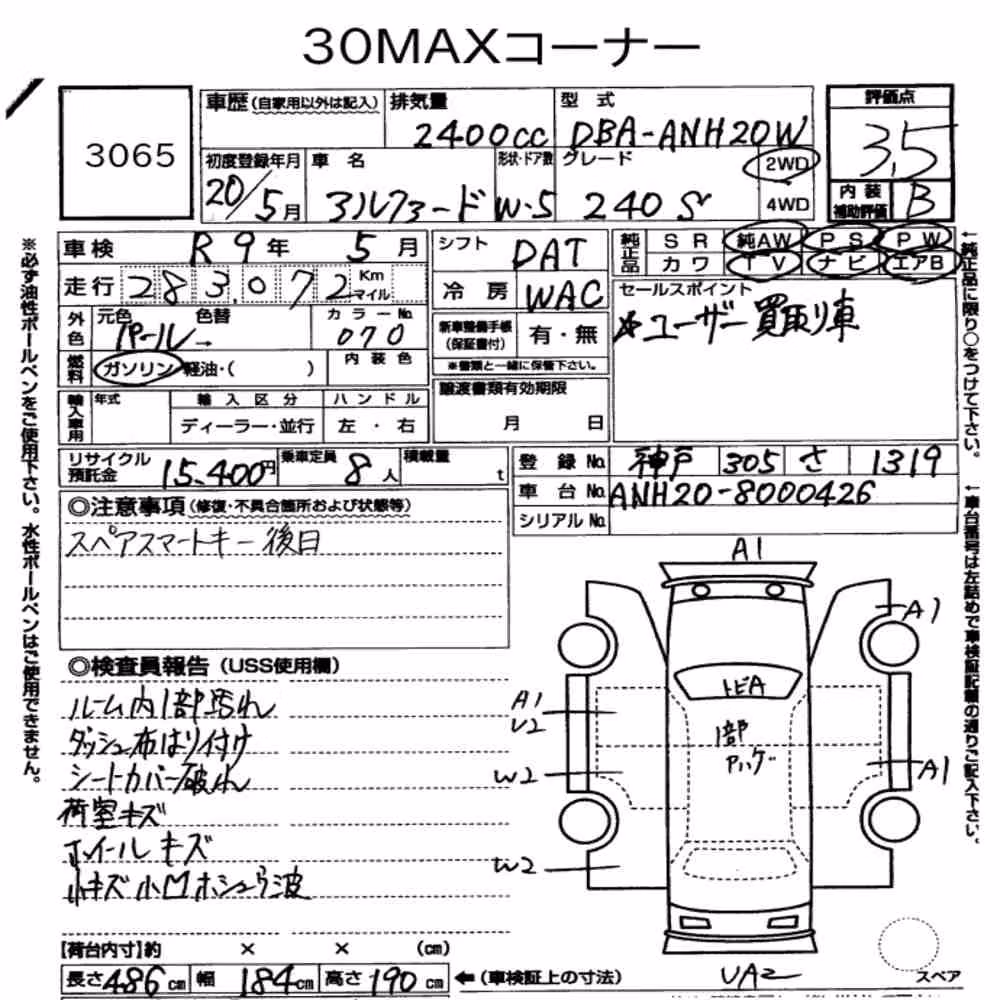 30MAXコーナー
3065
車歴(自家用以外は記入) 排気量 2400cc 型式 DBA-ANH20W
初度登録年月 20/5月 車名 アルファード 形状・ドア数 W・5 グレード 240 S 2WD 4WD
評価点 3.5
内装補助評価 B
車検 R9年 5月
走行 283,072 Km マイル
外色 元色 パール→ 色替 カラーNo. 070
燃料 ガソリン・軽油・( ) 内装色
輸入車用 年式 輸入区分 ディーラー・並行 ハンドル 左・右
シフト DAT
冷房 WAC
新車整備手帳(保証書付) 有・無
※書類と一緒に保管下さい。
譲渡書類有効期限 月 日
純正品 SR 純AW PS PW
カワ TV ナビ エアB
セールスポイント
☆ユーザー買取り車
リサイクル預託金 15,400円 乗車定員 8人 積載量 t
登録No. 神戸 305 さ 1319
車台No. ANH20-8000426
シリアルNo.
◎注意事項(修復・不具合箇所および状態等)
スペアスマートキー後日
◎検査員報告(USS使用欄)
ルーム内1部汚れ
ダッシュ布はり付け
シートカバー破れ
荷室キズ
ホイールキズ
小キズ小凹ホシュウ波
A1
A1
トビA
A1
U2
1部
W2
A1
W2
UA2
スペア
【荷台内寸】約 × × (cm)
長さ486cm 幅184cm 高さ190cm ←(車検証上の寸法)
※必ず油性ボールペンをご使用下さい。水性ボールペンはご使用できません。
←純正品に限り○をつけて下さい。
←車台番号は左詰めで車検証記載の通りご記入下さい。